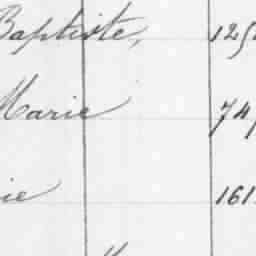 Baptiste, 125
Marie 74
ie 161
"